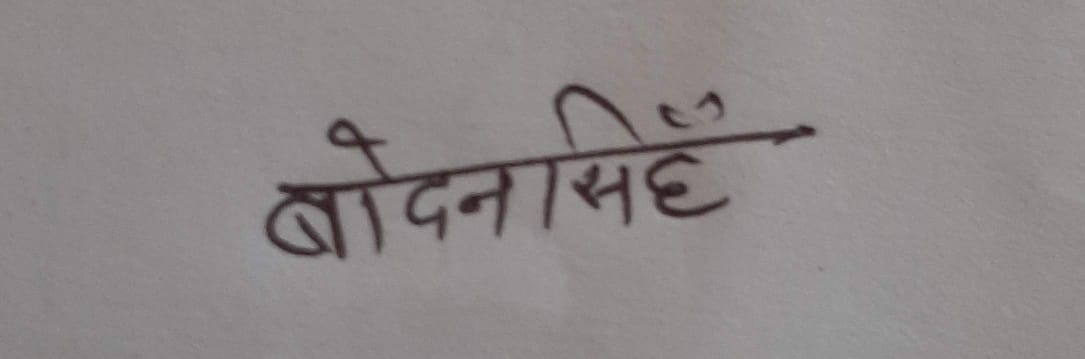 बोदनसिहँ